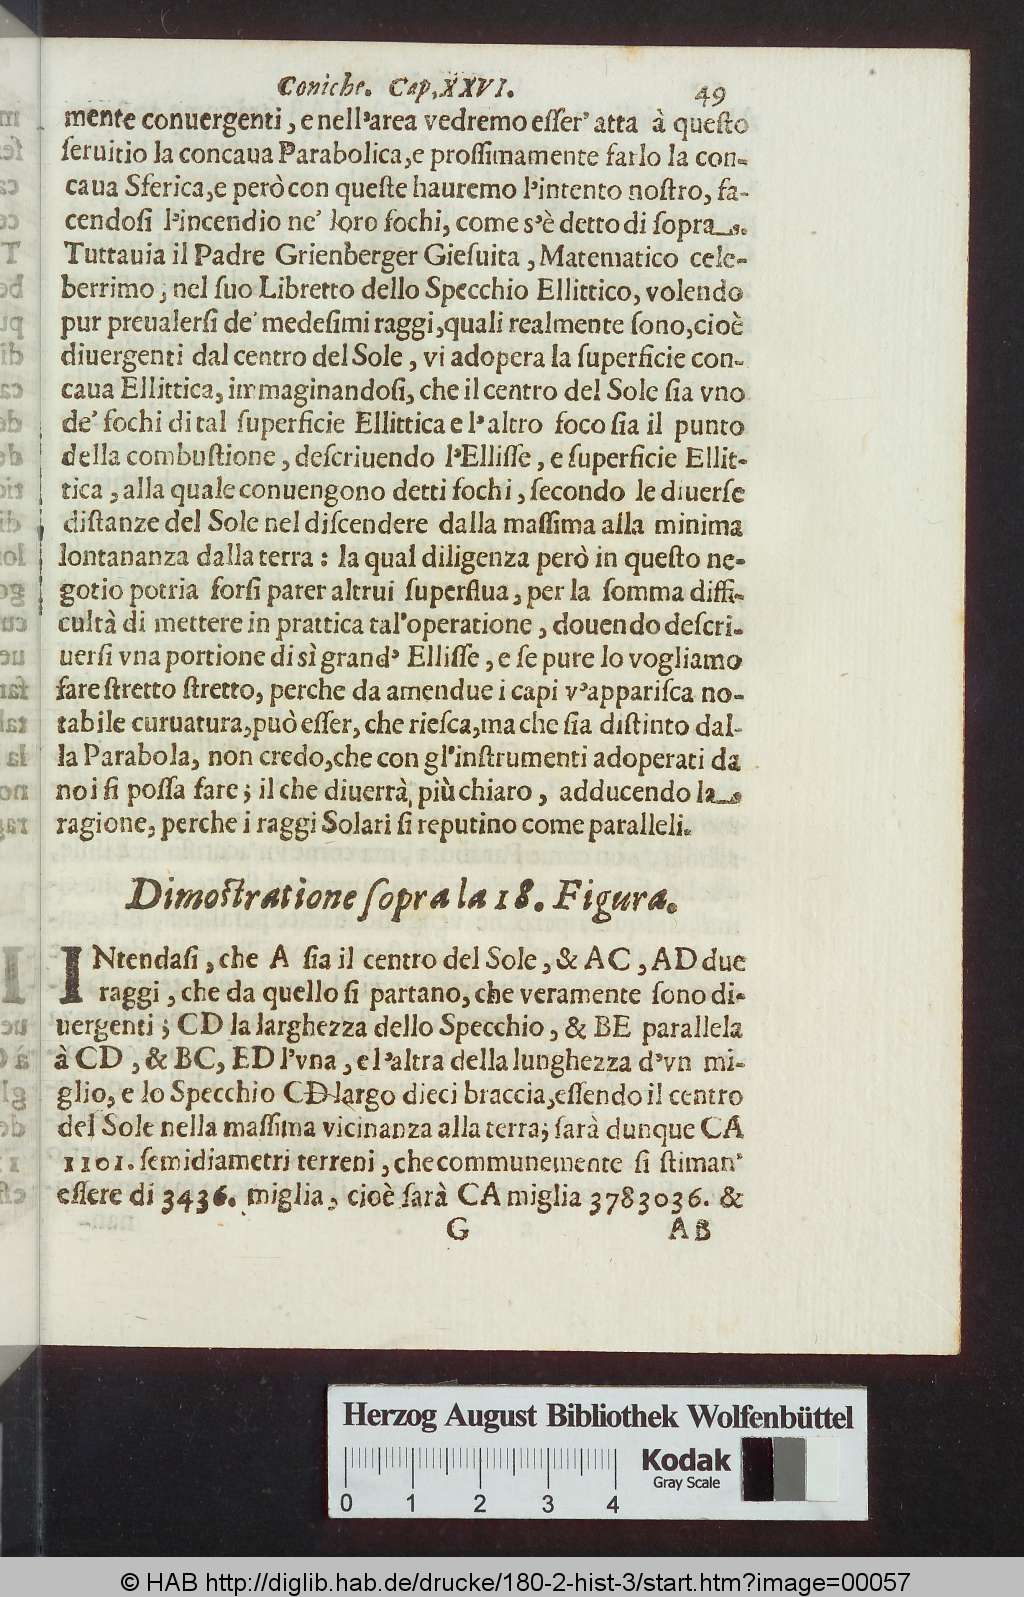 Coniche. Cap. XXVI. 49
mente conuergenti, e nell'area vedremo eſſer' atta à queſto
ſeruitio la concaua Parabolica, e proſſimamente farlo la con-
caua Sferica, e però con queſte hauremo l'intento noſtro, fa-
cendoſi l'incendio ne' loro fochi, come s'è detto di ſopra.
Tuttauia il Padre Grienberger Gieſuita, Matematico cele-
berrimo, nel ſuo Libretto dello Specchio Ellittico, volendo
pur preualerſi de' medeſimi raggi, quali realmente ſono, cioè
diuergenti dal centro del Sole, vi adopera la ſuperficie con-
caua Ellittica, immaginandoſi, che il centro del Sole ſia vno
de' fochi di tal ſuperficie Ellittica e l'altro foco ſia il punto
della combuſtione, deſcriuendo l'Elliſſe, e ſuperficie Ellit-
tica, alla quale conuengono detti fochi, ſecondo le diuerſe
diſtanze del Sole nel diſcendere dalla maſſima alla minima
lontananza dalla terra: la qual diligenza però in queſto ne-
gotio potria forſi parer altrui ſuperflua, per la ſomma diffi-
cultà di mettere in prattica tal'operatione, douendo deſcri-
uerſi vna portione di sì grand' Elliſſe, e ſe pure lo vogliamo
fare ſtretto ſtretto, perche da amendue i capi v'appariſca no-
tabile curuatura, può eſſer, che rieſca, ma che ſia diſtinto dal-
la Parabola, non credo, che con gl'inſtrumenti adoperati da
noi ſi poſſa fare; il che diuerrà più chiaro, adducendo la
ragione, perche i raggi Solari ſi reputino come paralleli.
Dimoſtratione ſopra la 18. Figura.
INtendaſi, che A ſia il centro del Sole, & AC, AD due
raggi, che da quello ſi partano, che veramente ſono di-
uergenti; CD la larghezza dello Specchio, & BE parallela
à CD, & BC, ED l'vna, e l'altra della lunghezza d'vn mi-
glio, e lo Specchio CD largo dieci braccia, eſſendo il centro
del Sole nella maſſima vicinanza alla terra; ſarà dunque CA
1101. ſemidiametri terreni, che communemente ſi ſtiman'
eſſere di 3436. miglia, cioè ſarà CA miglia 3783036. &
G AB
Herzog August Bibliothek Wolfenbüttel
Kodak
Gray Scale
0 1 2 3 4
© HAB http://diglib.hab.de/drucke/180-2-hist-3/start.htm?image=00057